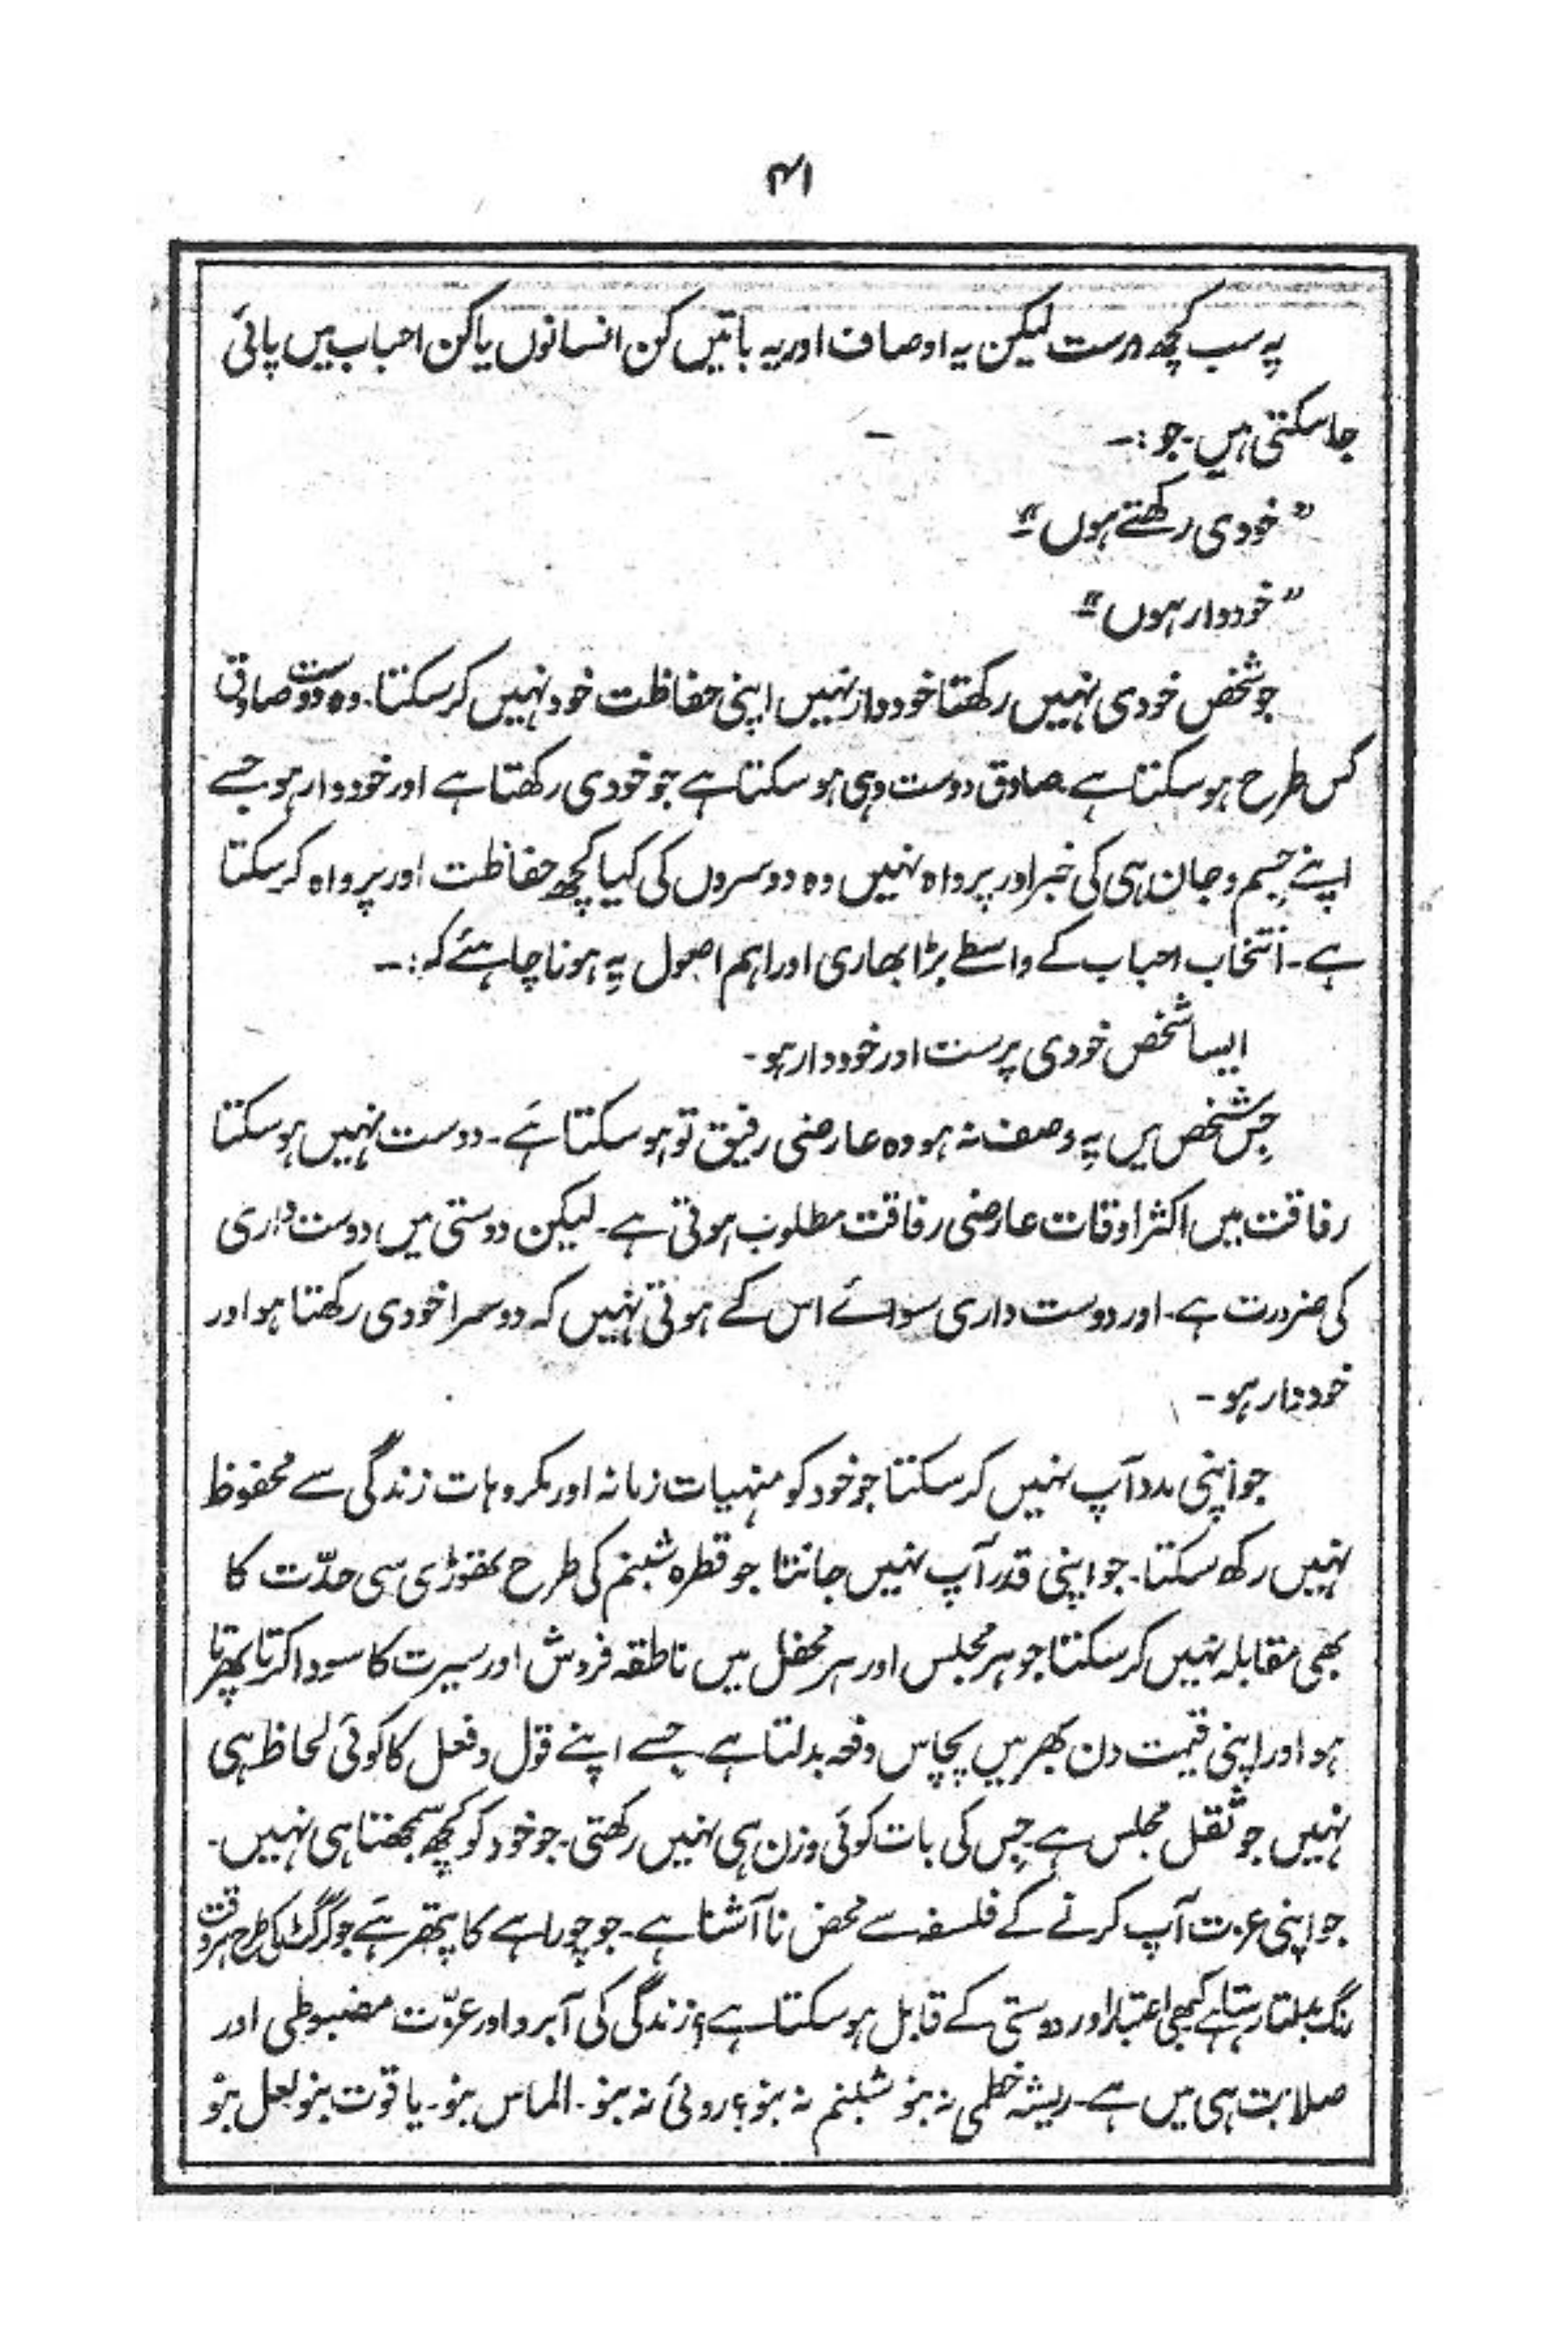 ۴۱
یہ سب کچھ درست لیکن یہ اوصاف اور یہ باتیں کن انسانوں یا کن احباب میں پائی
جا سکتی ہیں۔ جو:۔
”خودی رکھتے ہوں“
”خوددار ہوں“
جو شخص خودی نہیں رکھتا خوددار نہیں اپنی حفاظت خود نہیں کر سکتا۔ وہ دوست صادق
کس طرح ہو سکتا ہے۔ صادق دوست وہی ہو سکتا ہے جو خودی رکھتا ہے اور خوددار ہو جسے
اپنے جسم و جان ہی کی خبر اور پرواہ نہیں وہ دوسروں کی کیا کچھ حفاظت اور پرواہ کر سکتا
ہے۔ انتخاب احباب کے واسطے بڑا بھاری اور اہم اصول یہ ہونا چاہئے کہ:۔
ایسا شخص خودی پرست اور خوددار ہو۔
جس شخص میں یہ وصف نہ ہو وہ عارضی رفیق تو ہو سکتا ہے۔ دوست نہیں ہو سکتا
رفاقت میں اکثر اوقات عارضی رفاقت مطلوب ہوتی ہے۔ لیکن دوستی میں دوست داری
کی ضرورت ہے۔ اور دوست داری سوائے اس کے ہوتی نہیں کہ دوسرا خودی رکھتا ہو اور
خوددار ہو۔
جو اپنی مدد آپ نہیں کر سکتا جو خود کو منہیات زمانہ اور مکروہات زندگی سے محفوظ
نہیں رکھ سکتا۔ جو اپنی قدر آپ نہیں جانتا جو قطرہ شبنم کی طرح تھوڑی سی حدّت کا
بھی مقابلہ نہیں کر سکتا جو ہر مجلس اور ہر محفل میں ناطقہ فروش اور سیرت کا سودا کرتا پھرتا
ہو اور اپنی قیمت دن بھر میں پچاس دفعہ بدلتا ہے۔ جسے اپنے قول و فعل کا کوئی لحاظ ہی
نہیں جو ثقل مجلس ہے جس کی بات کوئی وزن ہی نہیں رکھتی۔ جو خود کو کچھ سمجھتا ہی نہیں۔
جو اپنی عزت آپ کرنے کے فلسفہ سے محض ناآشنا ہے۔ جو چوراہے کا پتھر ہے جو گرگٹ کی طرح ہر وقت
رنگ بدلتا رہتا ہے کبھی اعتبار اور دوستی کے قابل ہو سکتا ہے؟ زندگی کی آبرو اور عزّت مضبوطی اور
صلابت ہی میں ہے۔ ریشہ خطمی نہ بنو شبنم نہ بنو؟ روئی نہ بنو۔ الماس بنو۔ یاقوت بنو لعل بنو